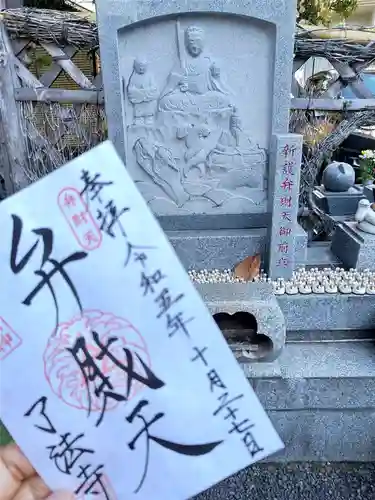 奉拝 令和五年 十月二十七日
弁財天
了法寺
新護弁財天御